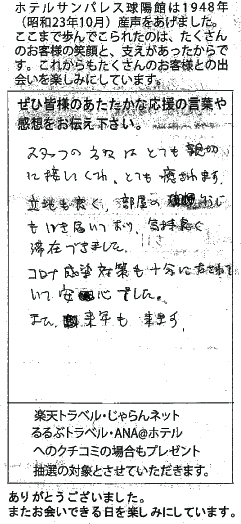 ホテルサンパレス球陽館は1948年
（昭和23年10月）産声をあげました。
ここまで歩んでこられたのは、たくさん
のお客様の笑顔と、支えがあったからで
す。これからもたくさんのお客様との出
会いを楽しみにしています。
ぜひ皆様のあたたかな応援の言葉や
感想をお伝え下さい。
スタッフの方々はとても親切
に接してくれ、とても癒されます。
立地も良く、部屋の
もいき届いており、気持良く
滞在できました。
コロナ感染対策も十分にされて
いて安心でした。
また、来年も来ます。
楽天トラベル・じゃらんネット
るるぶトラベル・ANA@ホテル
へのクチコミの場合もプレゼント
抽選の対象とさせていただきます。
ありがとうございました。
またお会いできる日を楽しみにしています。